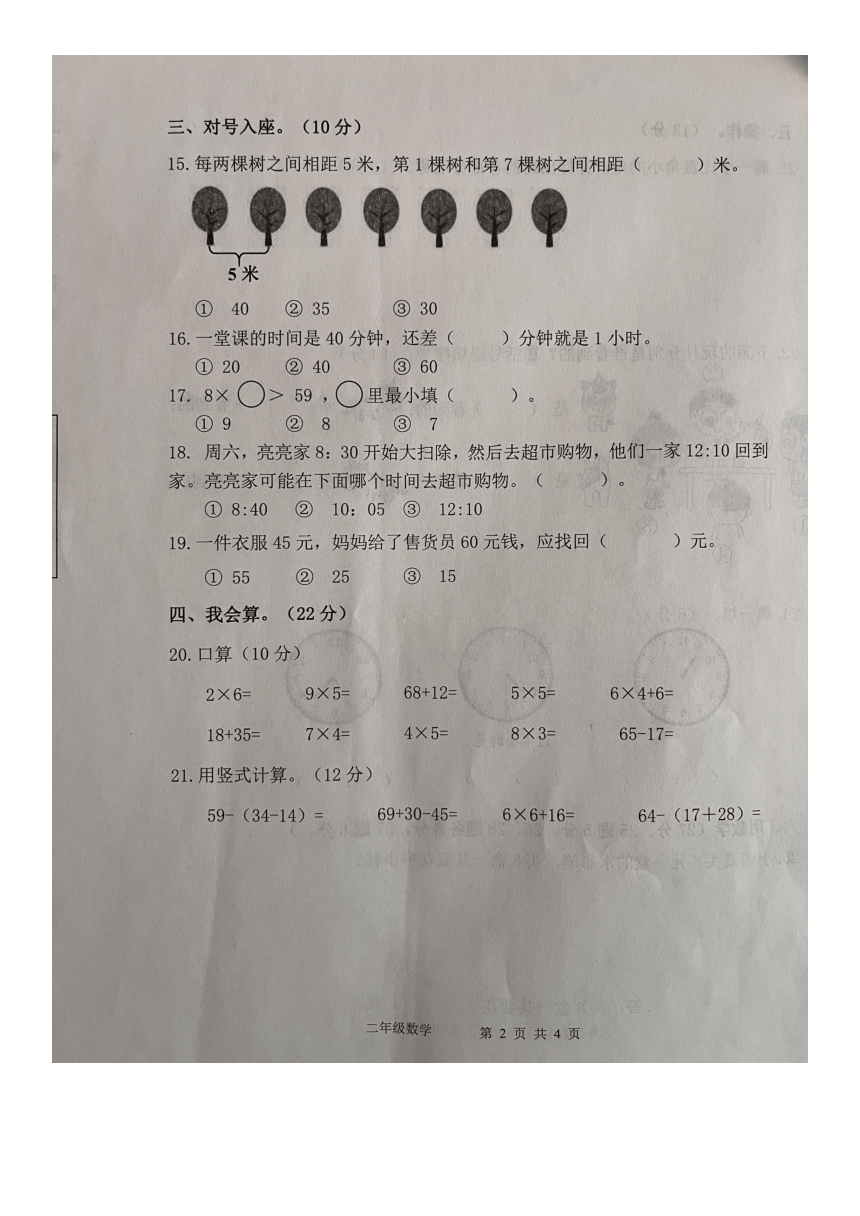 三、对号入座。（10 分）
15.每两棵树之间相距 5 米，第 1 棵树和第 7 棵树之间相距（　　）米。
5 米
① 40 ② 35 ③ 30
16.一堂课的时间是 40 分钟，还差（　　）分钟就是 1 小时。
① 20 ② 40 ③ 60
17. 8×○＞ 59 ，○里最小填（　　）。
① 9 ② 8 ③ 7
18. 周六，亮亮家 8：30 开始大扫除，然后去超市购物，他们一家 12:10 回到
家。亮亮家可能在下面哪个时间去超市购物。（　　）。
① 8:40 ② 10：05 ③ 12:10
19.一件衣服 45 元，妈妈给了售货员 60 元钱，应找回（　　）元。
① 55 ② 25 ③ 15
四、我会算。（22 分）
20.口算（10 分）
2×6= 9×5= 68+12= 5×5= 6×4+6=
18+35= 7×4= 4×5= 8×3= 65-17=
21.用竖式计算。（12 分）
59-（34-14）= 69+30-45= 6×6+16= 64-（17＋28）=
二年级数学 第 2 页 共 4 页